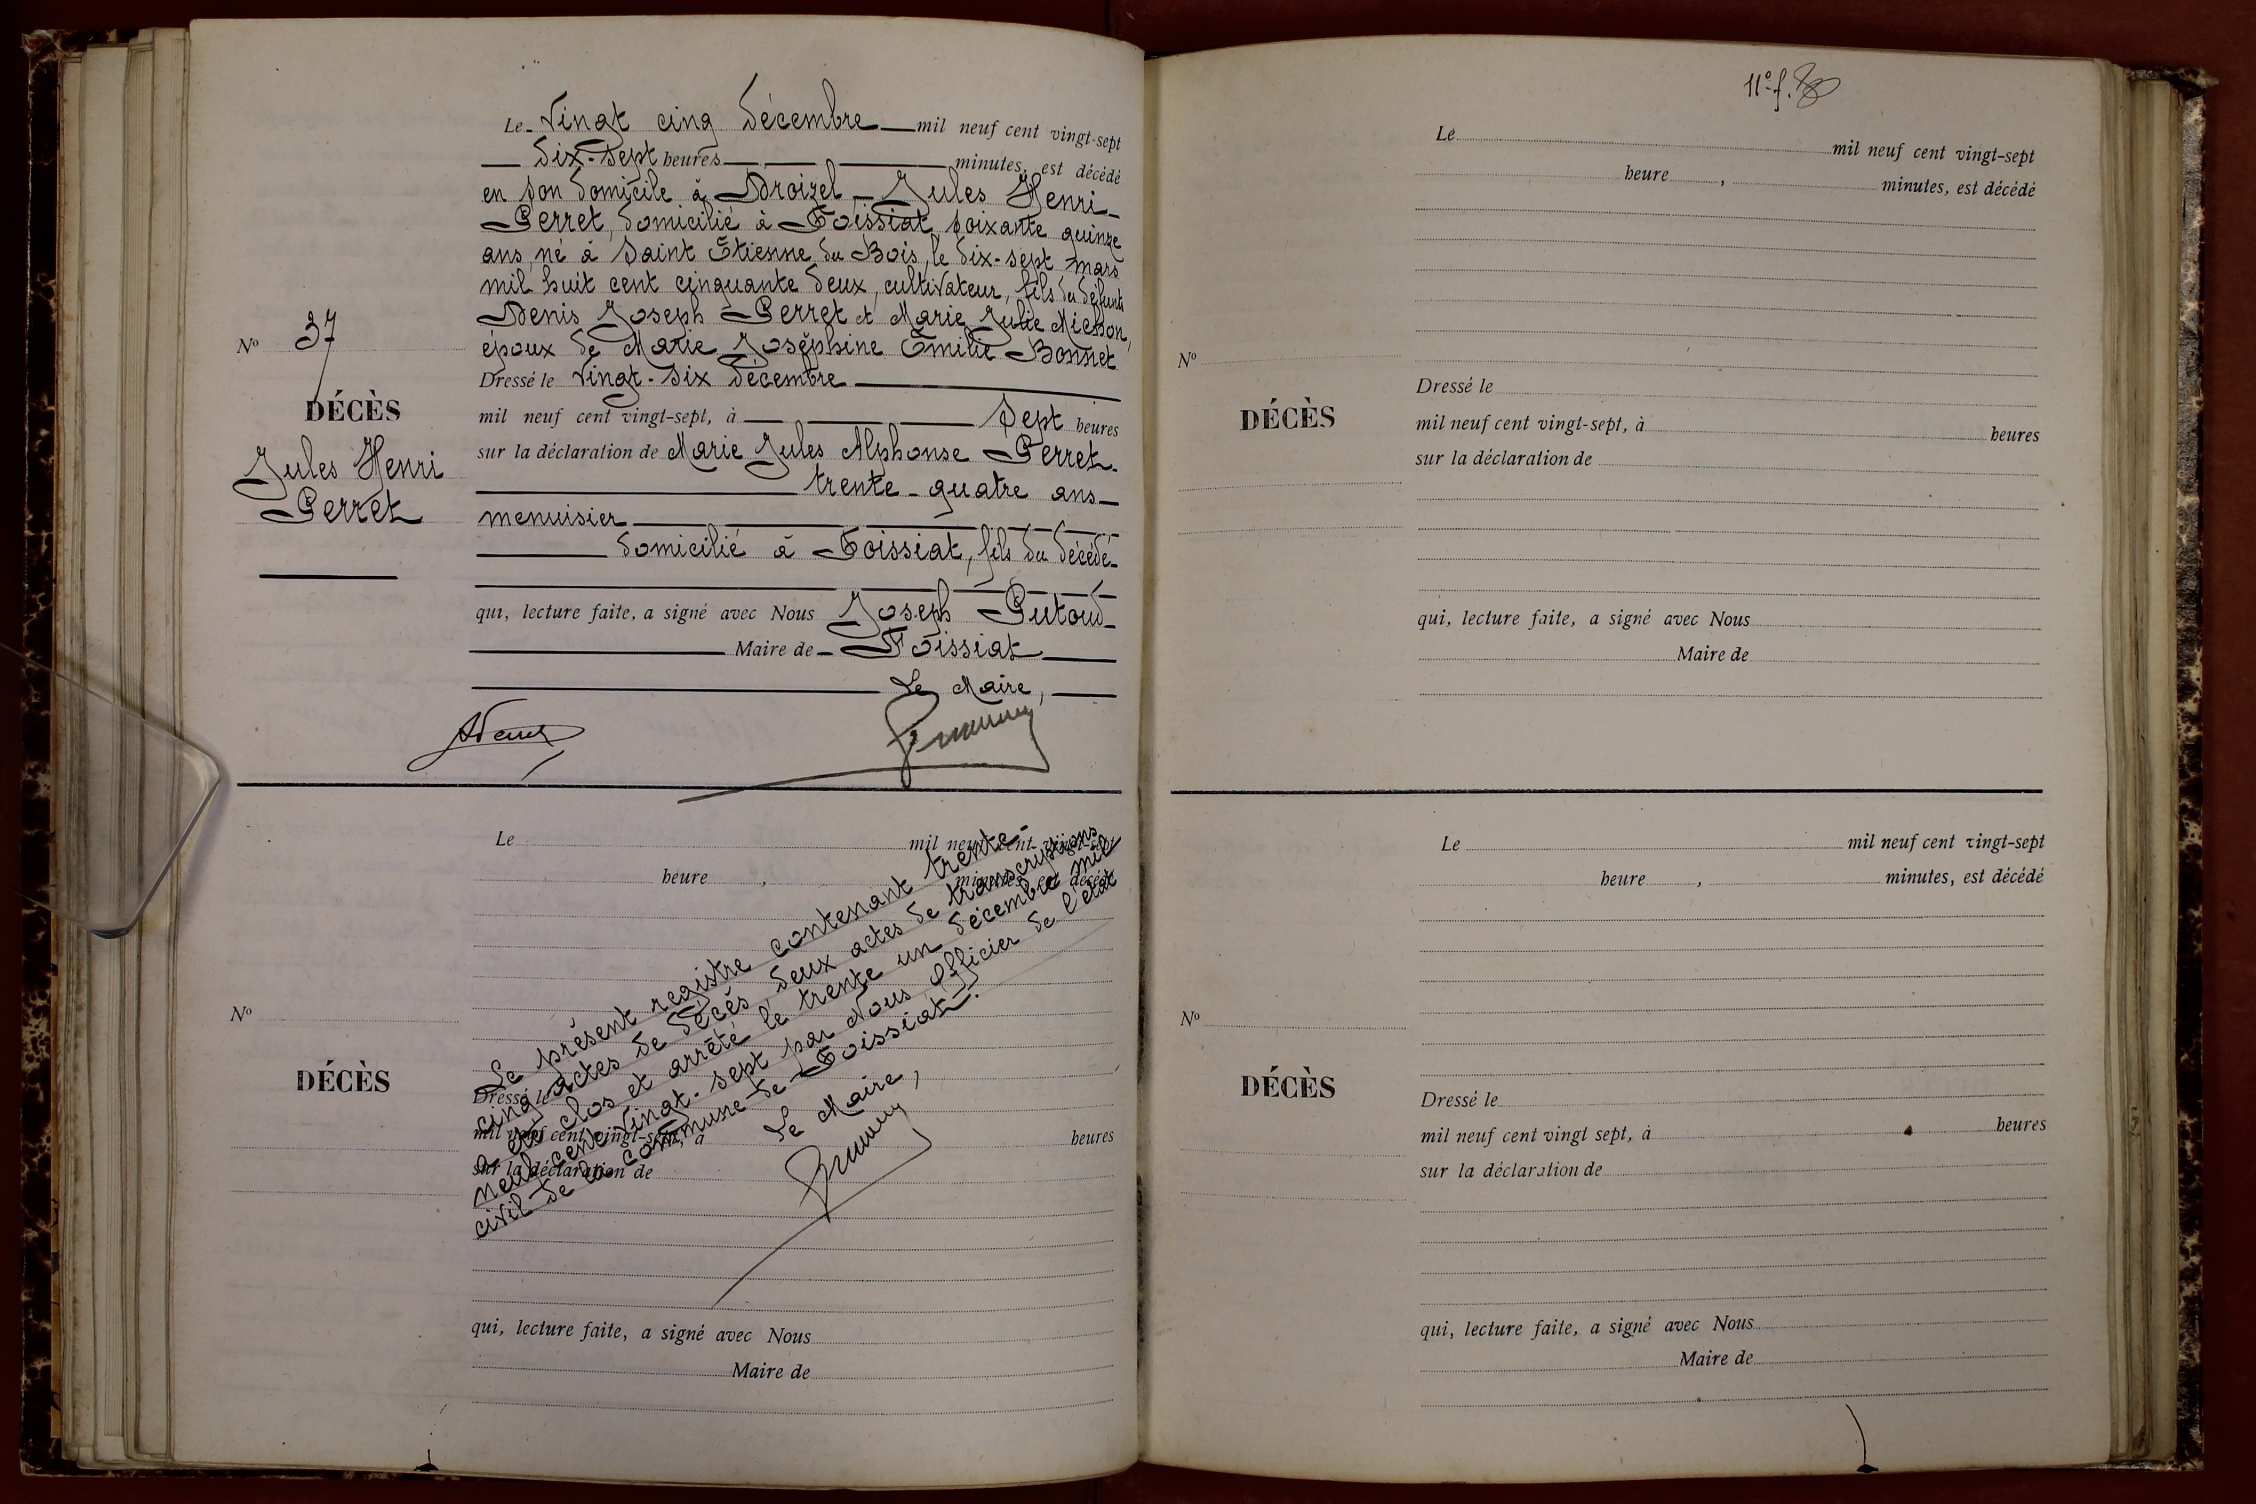 Le Vingt cinq décembre mil neuf cent vingt-sept
dix-sept heures minutes, est décédé
en son domicile à Droizel Jules Henri
Perret, domicilié à Foissiat, soixante quinze
ans, né à Saint Etienne du Bois, le dix-sept mars
mil huit cent cinquante deux, cultivateur, fils du défunts
Denis Joseph Perret et Marie Julie
époux de Marie Joséphine Emilie Bonnet
Dressé le Vingt-six décembre
mil neuf cent vingt-sept, à Sept heures
sur la déclaration de Marie Jules Alphonse Perret
trente-quatre ans
menuisier
domicilié à Foissiat, fils du décédé
qui, lecture faite, a signé avec Nous Joseph Putoud
Maire de Foissiat
Le Maire,
No 37
DÉCÈS
Jules Henri
Perret
Le mil neuf cent vingt-sept
heure , minutes, est décédé
No
DÉCÈS
Dressé le
mil neuf cent vingt-sept, à heures
sur la déclaration de
qui, lecture faite, a signé avec Nous
Maire de
Le présent registre contenant trente-
cinq actes de décès, deux actes de transcriptions
a été clos et arrêté le trente un décembre mil
neuf cent vingt-sept par Nous Officier de l'état
civil de la commune de Foissiat.
Le Maire,
11e f.
Le mil neuf cent vingt-sept
heure , minutes, est décédé
No
DÉCÈS
Dressé le
mil neuf cent vingt-sept, à heures
sur la déclaration de
qui, lecture faite, a signé avec Nous
Maire de
Le mil neuf cent vingt-sept
heure , minutes, est décédé
No
DÉCÈS
Dressé le
mil neuf cent vingt sept, à heures
sur la déclaration de
qui, lecture faite, a signé avec Nous
Maire de